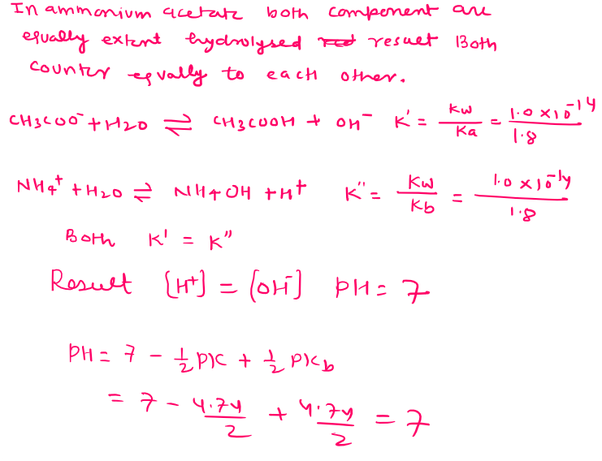 In ammonium acetate both component are
equally extent hydrolysed result Both
counter equally to each other.
CH3COO⁻ + H2O ⇌ CH3COOH + OH⁻ K' = Kw/Ka = 1.0 × 10⁻¹⁴/1.8
NH4⁺ + H2O ⇌ NH4OH + H⁺ K" = Kw/Kb = 1.0 × 10⁻¹⁴/1.8
Both K' = K"
Result [H⁺] = [OH⁻] PH = 7
PH = 7 - 1/2 PK + 1/2 PKb
= 7 - 4.74/2 + 4.74/2 = 7